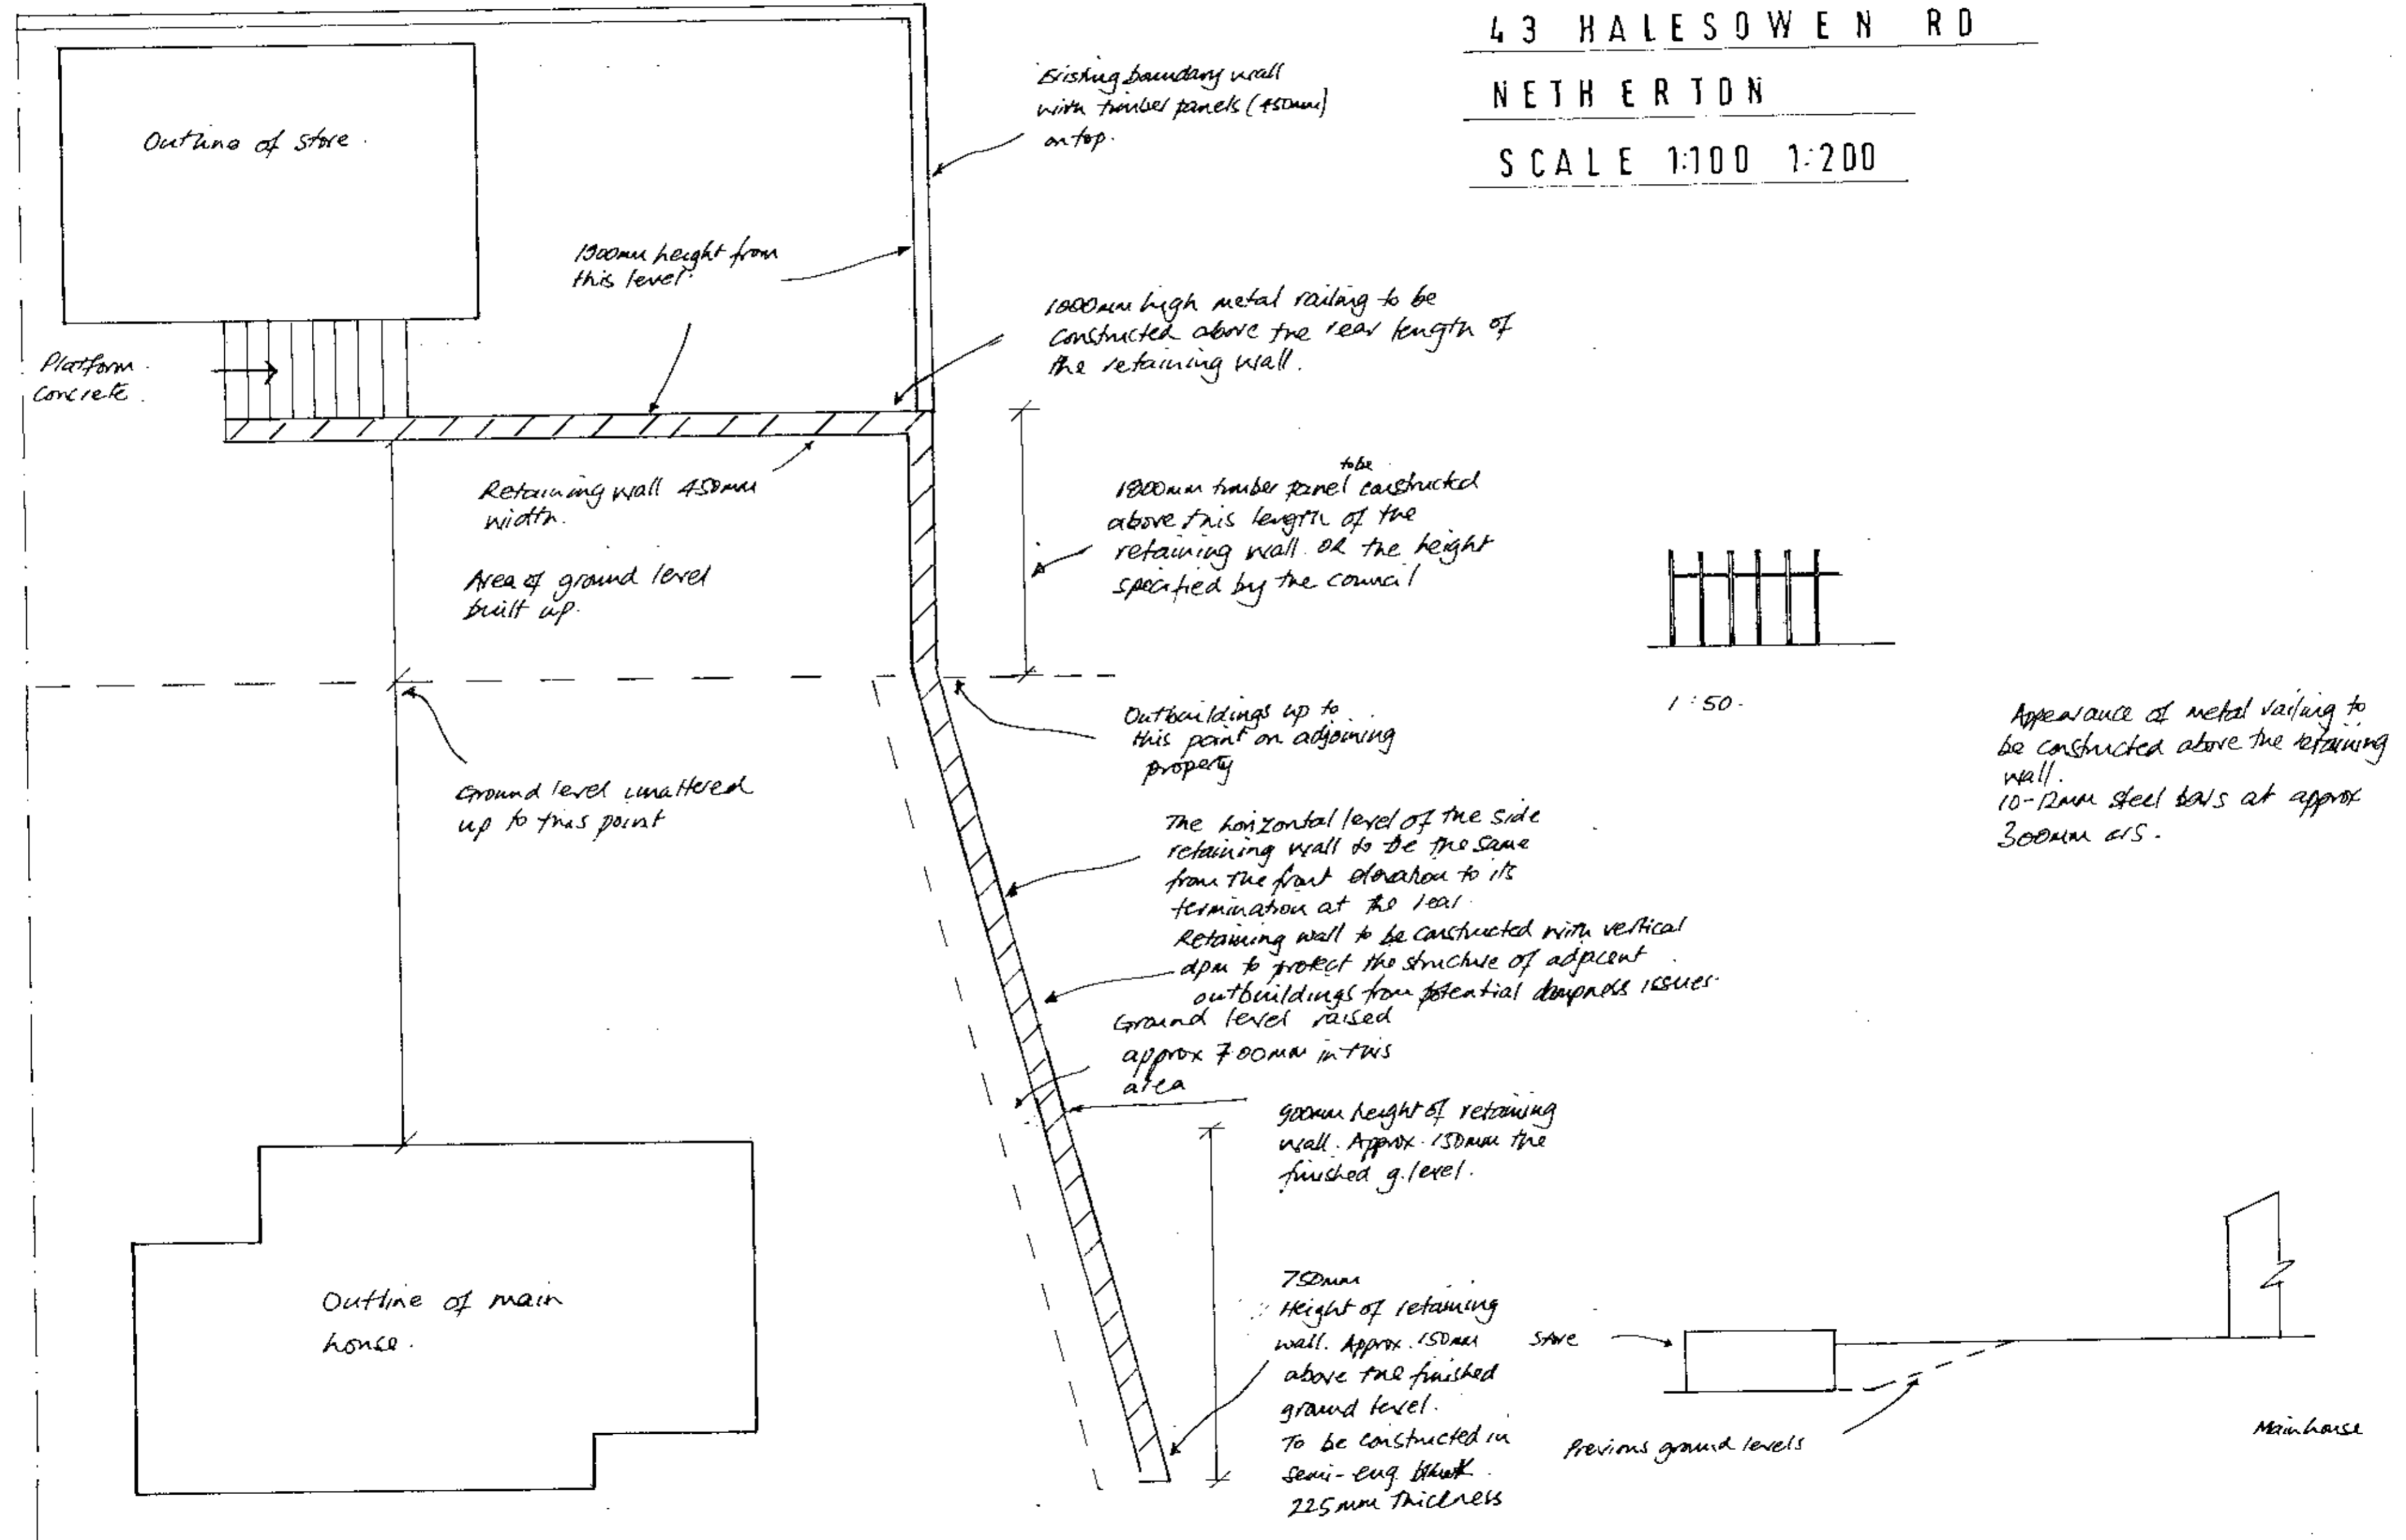 43 HALESOWEN RD
NETHERTON
SCALE 1:100 1:200
Existing boundary wall
with timber panels (450mm)
on top.
Outline of store.
1900mm height from
this level.
1000mm high metal railing to be
constructed above the rear length of
the retaining wall.
Platform
concrete.
Retaining wall 450mm
width.
Area of ground level
built up.
to be
1800mm timber panel constructed
above this length of the
retaining wall. OR the height
specified by the council
1:50.
Appearance of metal railing to
be constructed above the retaining
wall.
10-12mm steel bars at approx
300mm crs.
Outbuildings up to
this point on adjoining
property
Ground level unaltered
up to this point
The horizontal level of the side
retaining wall to be the same
from the front elevation to its
termination at the rear.
Retaining wall to be constructed with vertical
dpm to protect the structure of adjacent
outbuildings from potential dampness issues.
Ground level raised
approx 700mm in this
area
900mm height of retaining
wall. Approx. 150mm the
finished g. level.
Outline of main
house.
750mm
Height of retaining
wall. Approx. 150mm
above the finished
ground level.
To be constructed in
semi-eng.
225mm thickness
Store
Previous ground levels
Main house